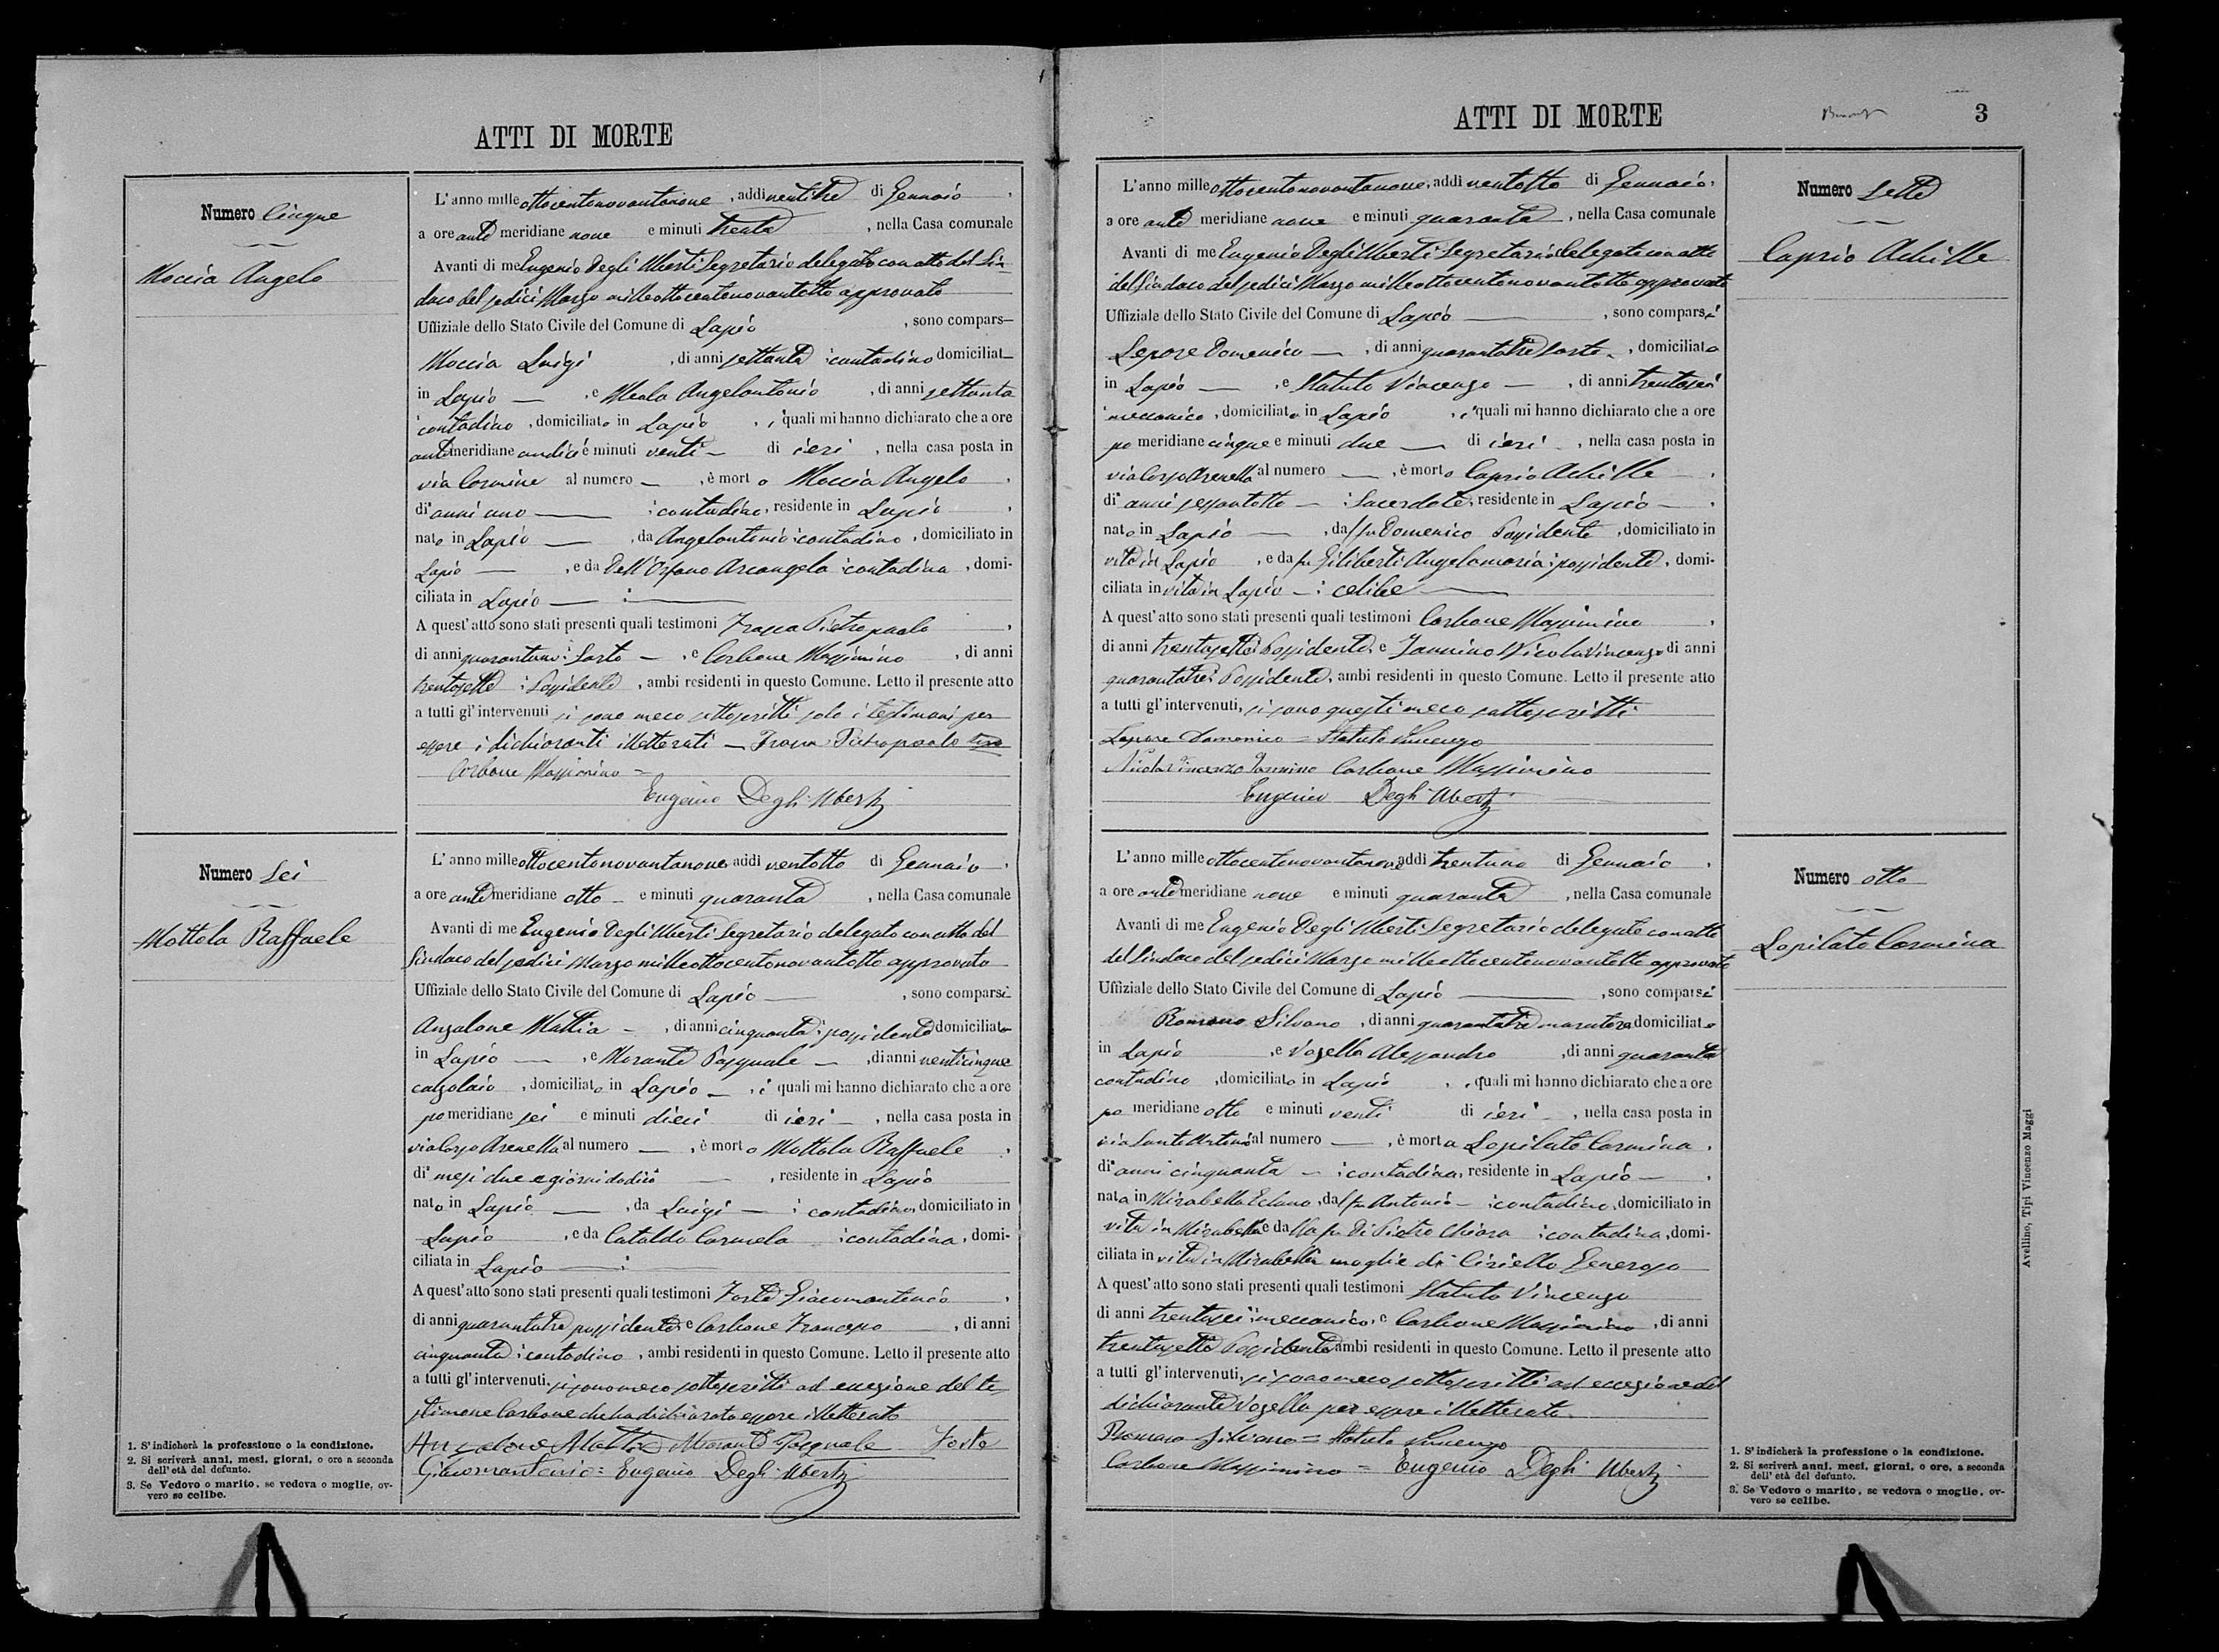 ATTI DI MORTE
Numero Cinque
Moccia Angelo
L'anno milleottocentonovantanove, addi ventitre di Gennaio,
a ore ante meridiane nove e minuti trenta, nella Casa comunale
Avanti di me Eugenio Degli Uberti Segretario delegato con atto del Sin
daco del sedici Marzo milleottocentonovantotto approvato
Uffiziale dello Stato Civile del Comune di Lapio, sono compars—
Moccia Luigi, di anni settanta contadino domiciliat—
in Lapio —, e Meola Angelantonio, di anni settanta
contadino, domiciliato in Lapio, i quali mi hanno dichiarato che a ore
antemeridiane undici e minuti venti — di ieri, nella casa posta in
via Carmine al numero —, è morto Moccia Angelo,
di anni uno — contadino, residente in Lapio,
nato in Lapio —, da Angelantonio contadino, domiciliato in
Lapio —, e da Dell'Orfano Arcangela contadina, domi-
ciliata in Lapio —
A quest'atto sono stati presenti quali testimoni Pietropaolo,
di anni quarantuno Sarto —, e Carbone Massimino, di anni
trentasette Possidente, ambi residenti in questo Comune. Letto il presente atto
a tutti gl'intervenuti si sono meco sottoscritti solo i testimoni per
essere i dichiaranti illetterati — Pietropaolo
Carbone Massimino =
Eugenio Degli Uberti
Numero Sei
Mottola Raffaele
L'anno milleottocentonovantanove, addi ventotto di Gennaio,
a ore antemeridiane otto — e minuti quaranta, nella Casa comunale
Avanti di me Eugenio Degli Uberti Segretario delegato con atto del
Sindaco del sedici Marzo milleottocentonovantotto approvato
Uffiziale dello Stato Civile del Comune di Lapio —, sono comparsi
Anzalone Mattia —, di anni cinquanta possidente domiciliato
in Lapio —, e Morante Pasquale —, di anni venticinque
calzolaio, domiciliato in Lapio —, i quali mi hanno dichiarato che a ore
pomeridiane sei e minuti dieci di ieri —, nella casa posta in
via Corso Arenella al numero —, è morto Mottola Raffaele,
di mesi due e giorni dodici —, residente in Lapio
nato in Lapio —, da Luigi — contadino, domiciliato in
Lapio, e da Cataldo Carmela contadina, domi-
ciliata in Lapio —
A quest'atto sono stati presenti quali testimoni Forte Giacomantonio,
di anni quarantatre possidente, e Carbone Francesco —, di anni
cinquanta contadino, ambi residenti in questo Comune. Letto il presente atto
a tutti gl'intervenuti, si sono meco sottoscritti ad eccezione del te
stimone Carbone che ha dichiarato essere illetterato
Anzalone Mattia Morante Pasquale Forte
Giacomantonio = Eugenio Degli Uberti
1. S'indicherà la professione o la condizione.
2. Si scriverà anni, mesi, giorni, o ore a seconda
dell'età del defunto.
3. Se Vedovo o marito, se vedova o moglie, ov-
vero se celibe.
ATTI DI MORTE
3
Numero Sette
Caprio Achille
L'anno milleottocentonovantanove, addi ventotto di Gennaio,
a ore ante meridiane nove e minuti quaranta, nella Casa comunale
Avanti di me Eugenio Degli Uberti Segretario delegato con atto
del Sindaco del sedici Marzo milleottocentonovantotto approvato
Uffiziale dello Stato Civile del Comune di Lapio —, sono comparsi
Lepore Domenico —, di anni quarantatre sarto —, domiciliato
in Lapio —, e Statuto Vincenzo —, di anni trentasei
meccanico, domiciliato in Lapio, i quali mi hanno dichiarato che a ore
po meridiane cinque e minuti due — di ieri, nella casa posta in
via Corso Arenella al numero —, è morto Caprio Achille,
di anni sessantotto — Sacerdote, residente in Lapio —,
nato in Lapio —, da fu Domenico Possidente, domiciliato in
vita in Lapio, e da fu Giliberti Angelamaria possidente, domi-
ciliata in vita in Lapio — celibe —
A quest'atto sono stati presenti quali testimoni Carbone Massimino,
di anni trentasette Possidente, e Iannino Nicola Vincenzo di anni
quarantatre Possidente, ambi residenti in questo Comune. Letto il presente atto
a tutti gl'intervenuti, si sono questi meco sottoscritti
Lepore Domenico = Statuto Vincenzo
Nicola Vincenzo Iannino Carbone Massimino
Eugenio Degli Uberti
Numero otto
Lopilato Carmina
L'anno milleottocentonovantanove addi trentuno di Gennaio,
a ore antemeridiane nove e minuti quaranta, nella Casa comunale
Avanti di me Eugenio Degli Uberti Segretario delegato con atto
del Sindaco del sedici Marzo milleottocentonovantotto approvato
Uffiziale dello Stato Civile del Comune di Lapio —, sono comparsi
Romano Silvano, di anni quarantatre muratore domiciliato
in Lapio, e Vosella Alessandro, di anni quaranta
contadino, domiciliato in Lapio, i quali mi hanno dichiarato che a ore
po meridiane otto e minuti venti di ieri —, nella casa posta in
via al numero —, è morta Lopilato Carmina,
di anni cinquanta — contadina, residente in Lapio —,
nata in Mirabella Eclano, da fu Antonio — contadino, domiciliato in
vita in Mirabella e dalla fu Di Pietro Chiara contadina, domi-
ciliata in vita in Mirabella moglie di Ciriello Generoso
A quest'atto sono stati presenti quali testimoni Statuto Vincenzo
di anni trentasei meccanico, e Carbone Massimino, di anni
trentasette Possidente ambi residenti in questo Comune. Letto il presente atto
a tutti gl'intervenuti, si sono meco sottoscritti ad eccezione del
dichiarante Vosella per essere illetterato
Romano Silvano = Statuto Vincenzo
Carbone Massimino = Eugenio Degli Uberti
1. S'indicherà la professione o la condizione.
2. Si scriverà anni, mesi, giorni, o ore, a seconda
dell'età del defunto.
3. Se Vedovo o marito, se vedova o moglie, ov-
vero se celibe.
Avellino, Tipi Vincenzo Maggi